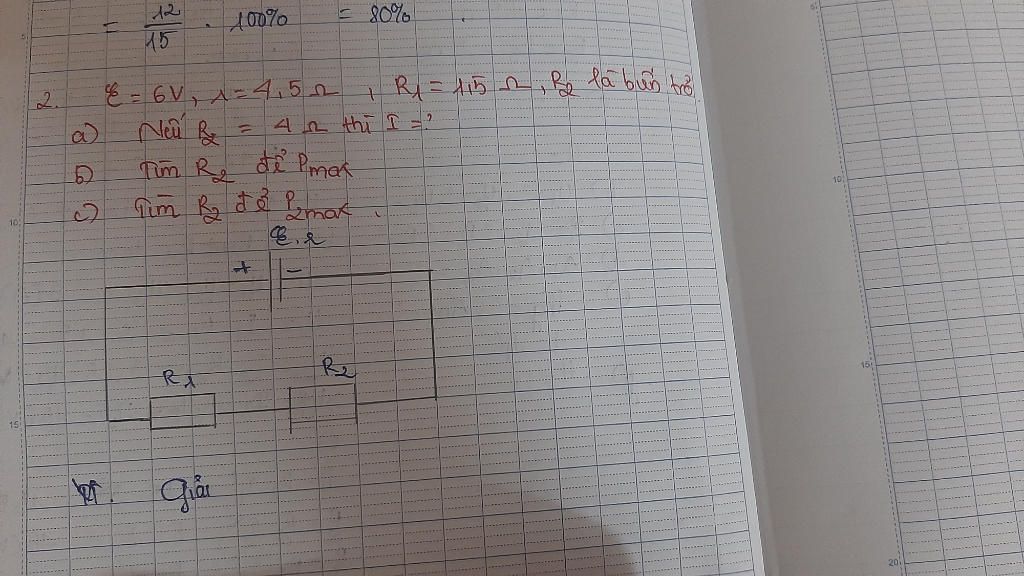 = 12/15 . 100% = 80% .
2. ℰ = 6V, r = 4,5 Ω , R1 = 1,5 Ω , R2 là biến trở.
a) Nếu R2 = 4 Ω thì I = ?
b) Tìm R2 để Pmax
c) Tìm R2 để P2max .
ℰ, r
+ -
R1 R2
Giải
5
10
15
10
15
20